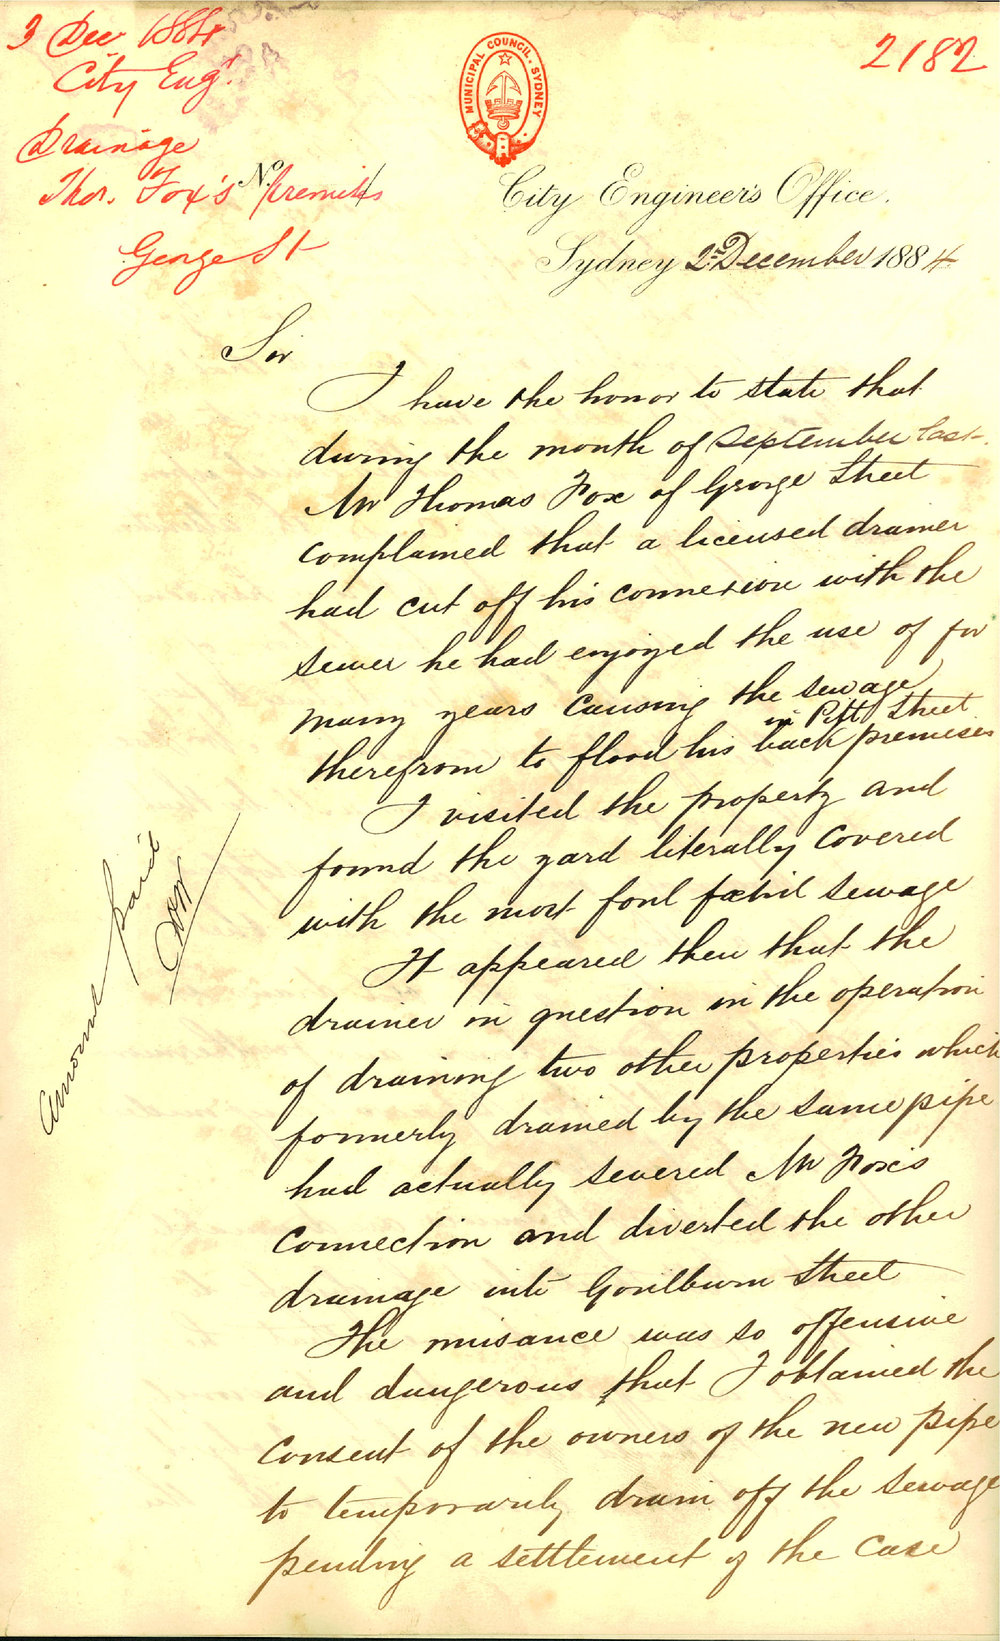 3 Dec 1884
City Engr.
Drainage
of
Thos. Fox's premises
George St
No.
MUNICIPAL COUNCIL. SYDNEY
2182
City Engineer's Office.
Sydney 2nd December 1884
Sir
I have the honor to state that
during the month of September last
Mr Thomas Fox of George Street
complained that a licensed drainer
had cut off his connexion with the
sewer he had enjoyed the use of for
many years causing the sewage
in Pitt Street
therefrom to flood his back premises
I visited the property and
found the yard literally covered
with the most foul fœtid sewage
It appeared then that the
drainer in question in the operation
of draining two other properties which
formerly drained by the same pipe
had actually severed Mr Fox's
connection and diverted the other
drainage into Goulburn Street
The nuisance was so offensive
and dangerous that I obtained the
consent of the owners of the new pipe
to temporarily drain off the sewage
pending a settlement of the case
Amount paid